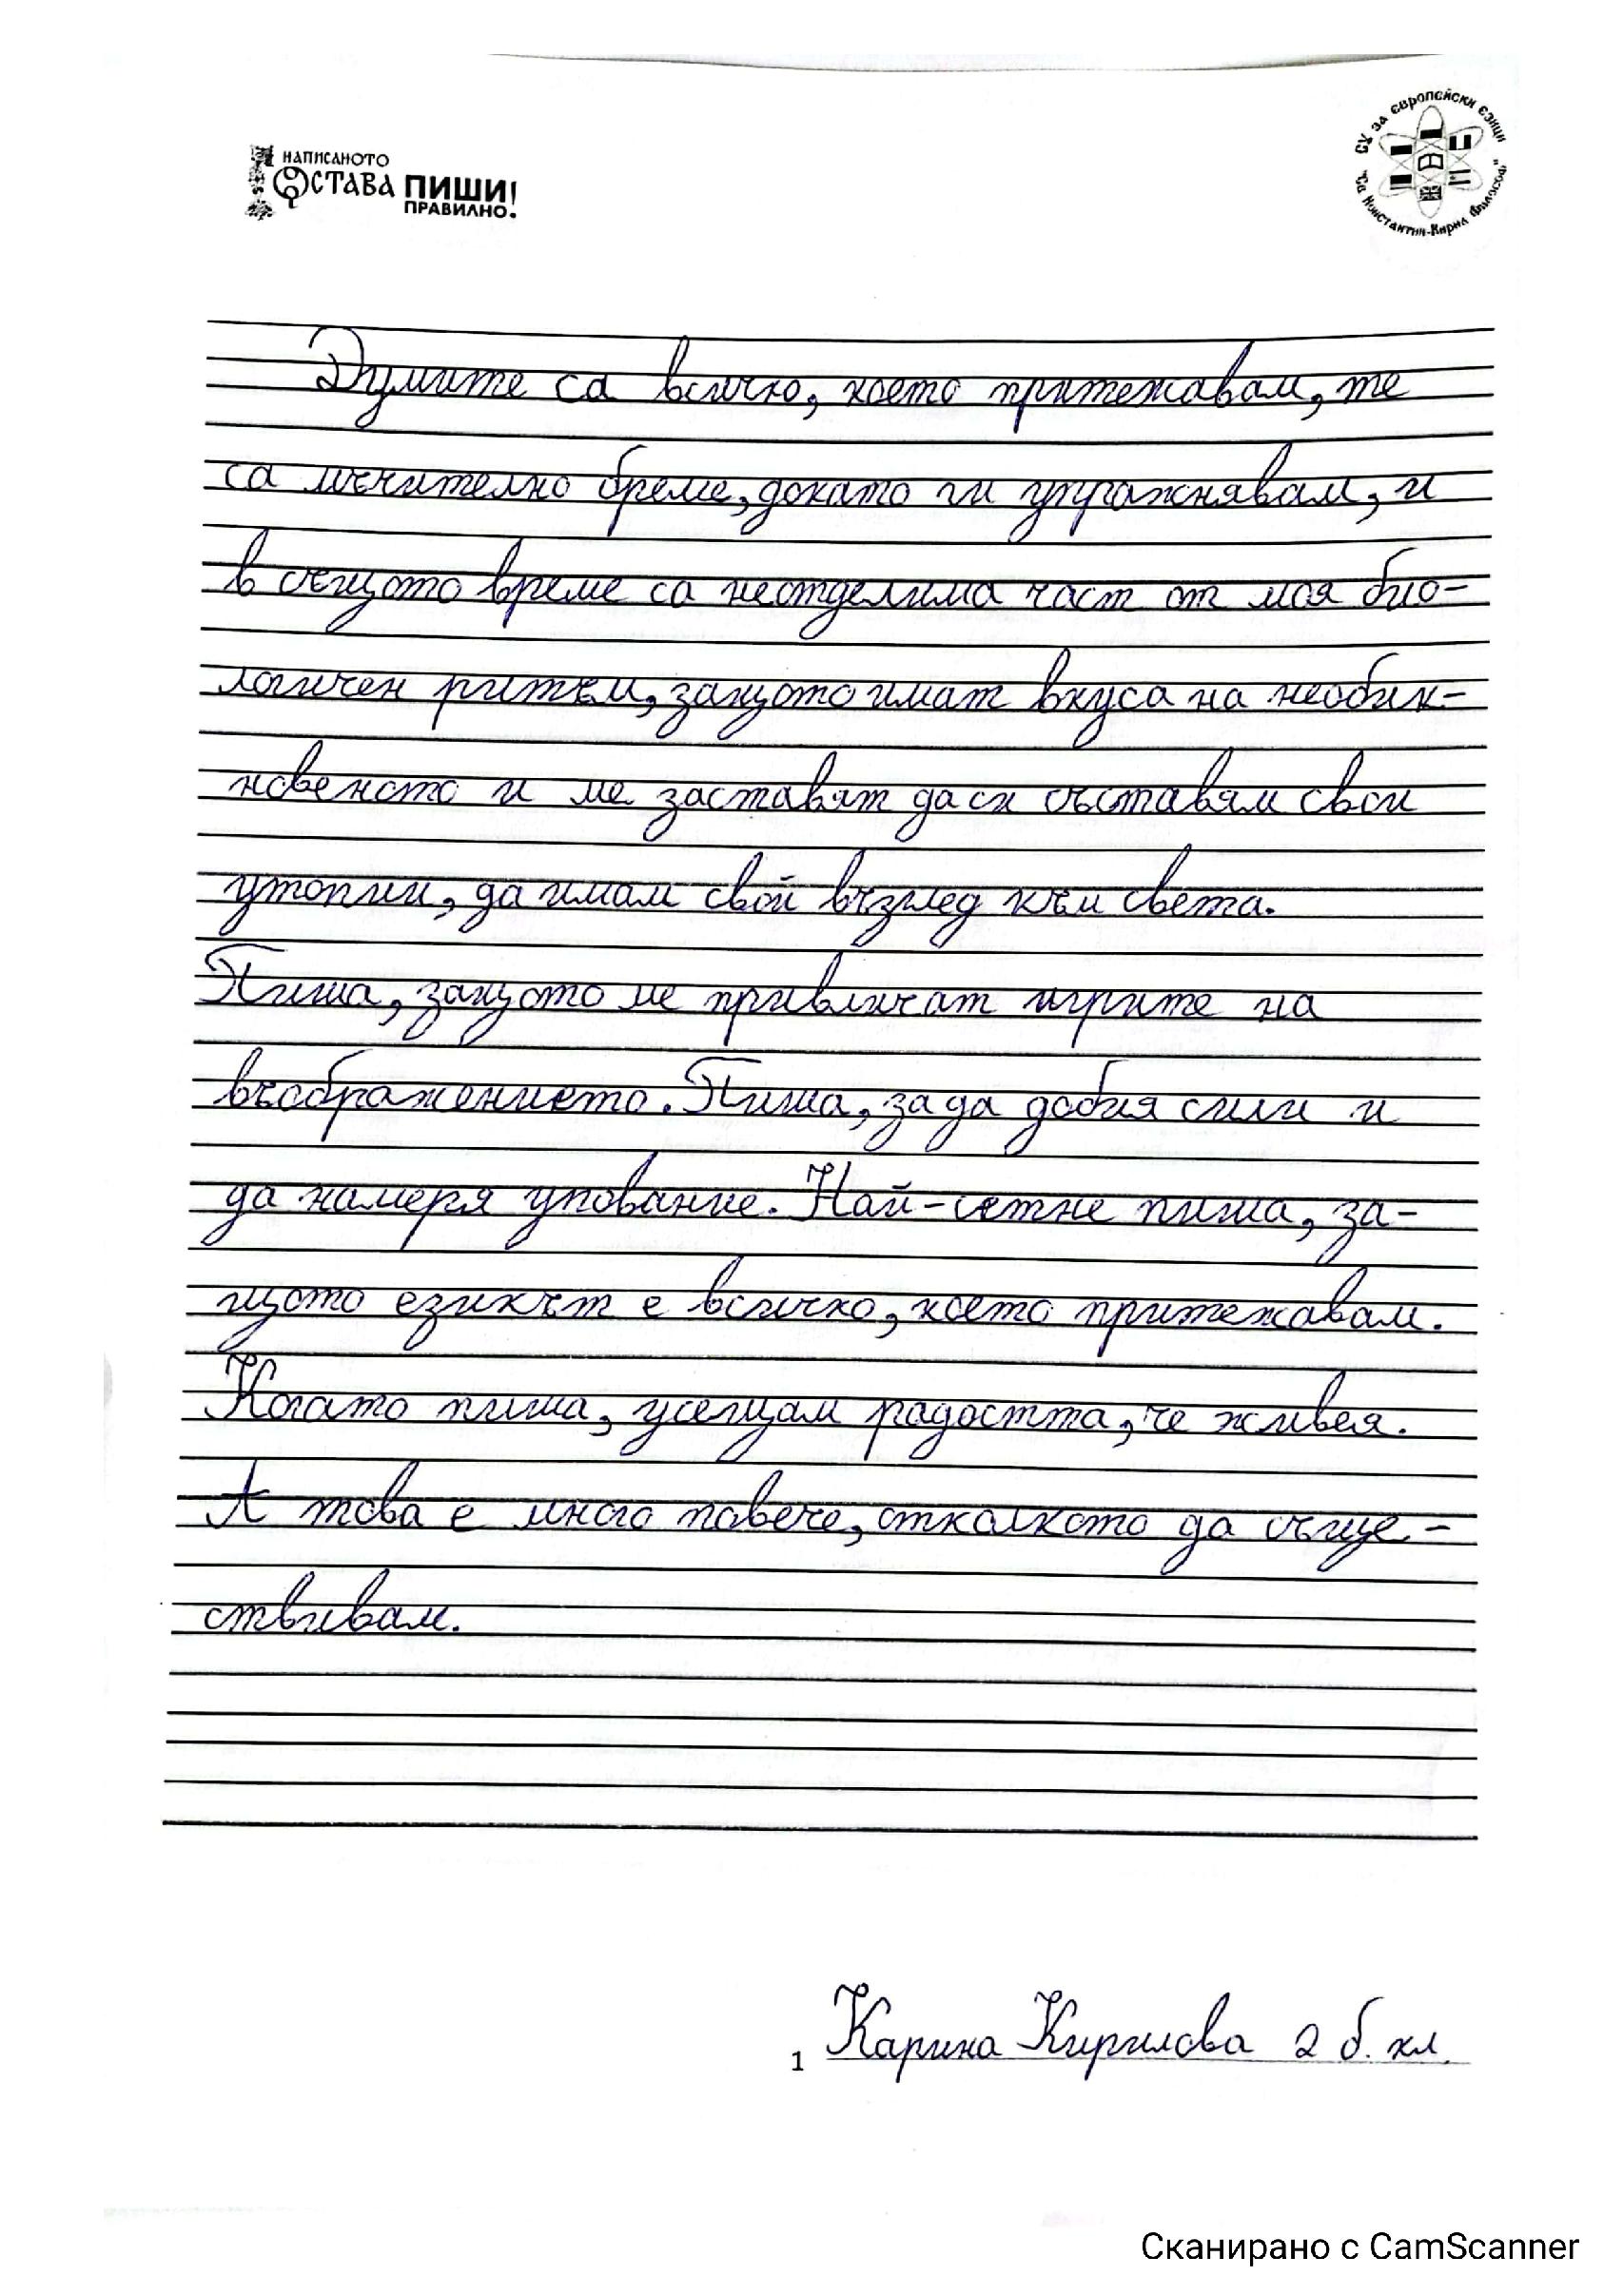 НАПИСАНОТО
ОСТАВА ПИШИ!
ПРАВИЛНО.
СУ за европейски езици
"Св. Константин-Кирил Философ"
Думите са всичко, което притежавам, те
са мъчително бреме, докато ги упражнявам, и
в същото време са неотделима част от моя био-
логичен ритъм, защото имат вкуса на необик-
новеното и ме заставят да си съставям свои
утопии, да имам свой възглед към света.
Пиша, защото ме привличат игрите на
въображението. Пиша, за да добия сили и
да намеря упование. Най-сетне пиша, за-
щото езикът е всичко, което притежавам.
Когато пиша, усещам радостта, че живея.
А това е много повече, отколкото да съще-
ствувам.
1 Карина Кирилова 2 б. кл.
Сканирано с CamScanner